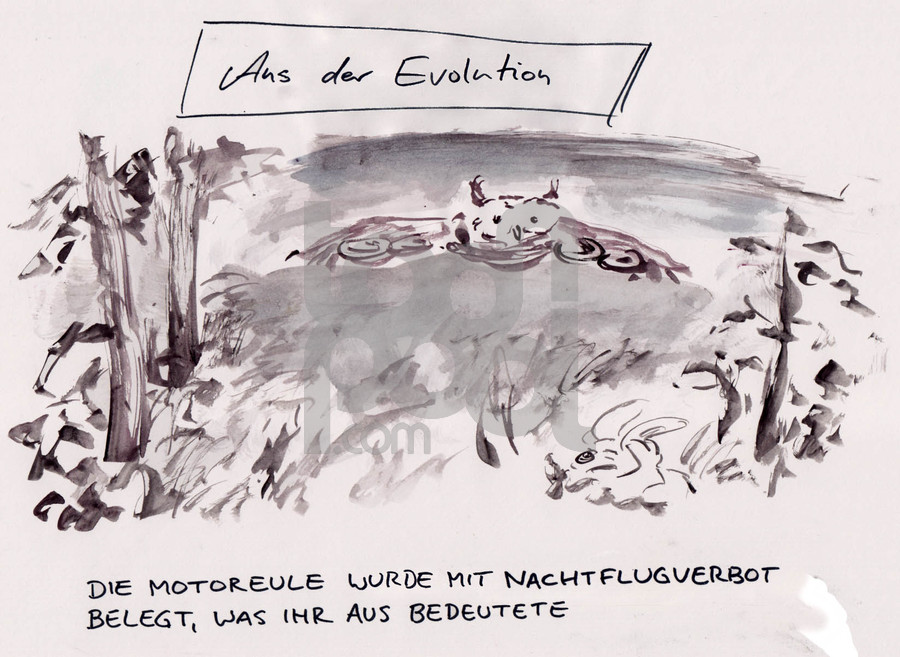 Aus der Evolution
toonpool
.com
DIE MOTOREULE WURDE MIT NACHTFLUGVERBOT
BELEGT, WAS IHR AUS BEDEUTETE